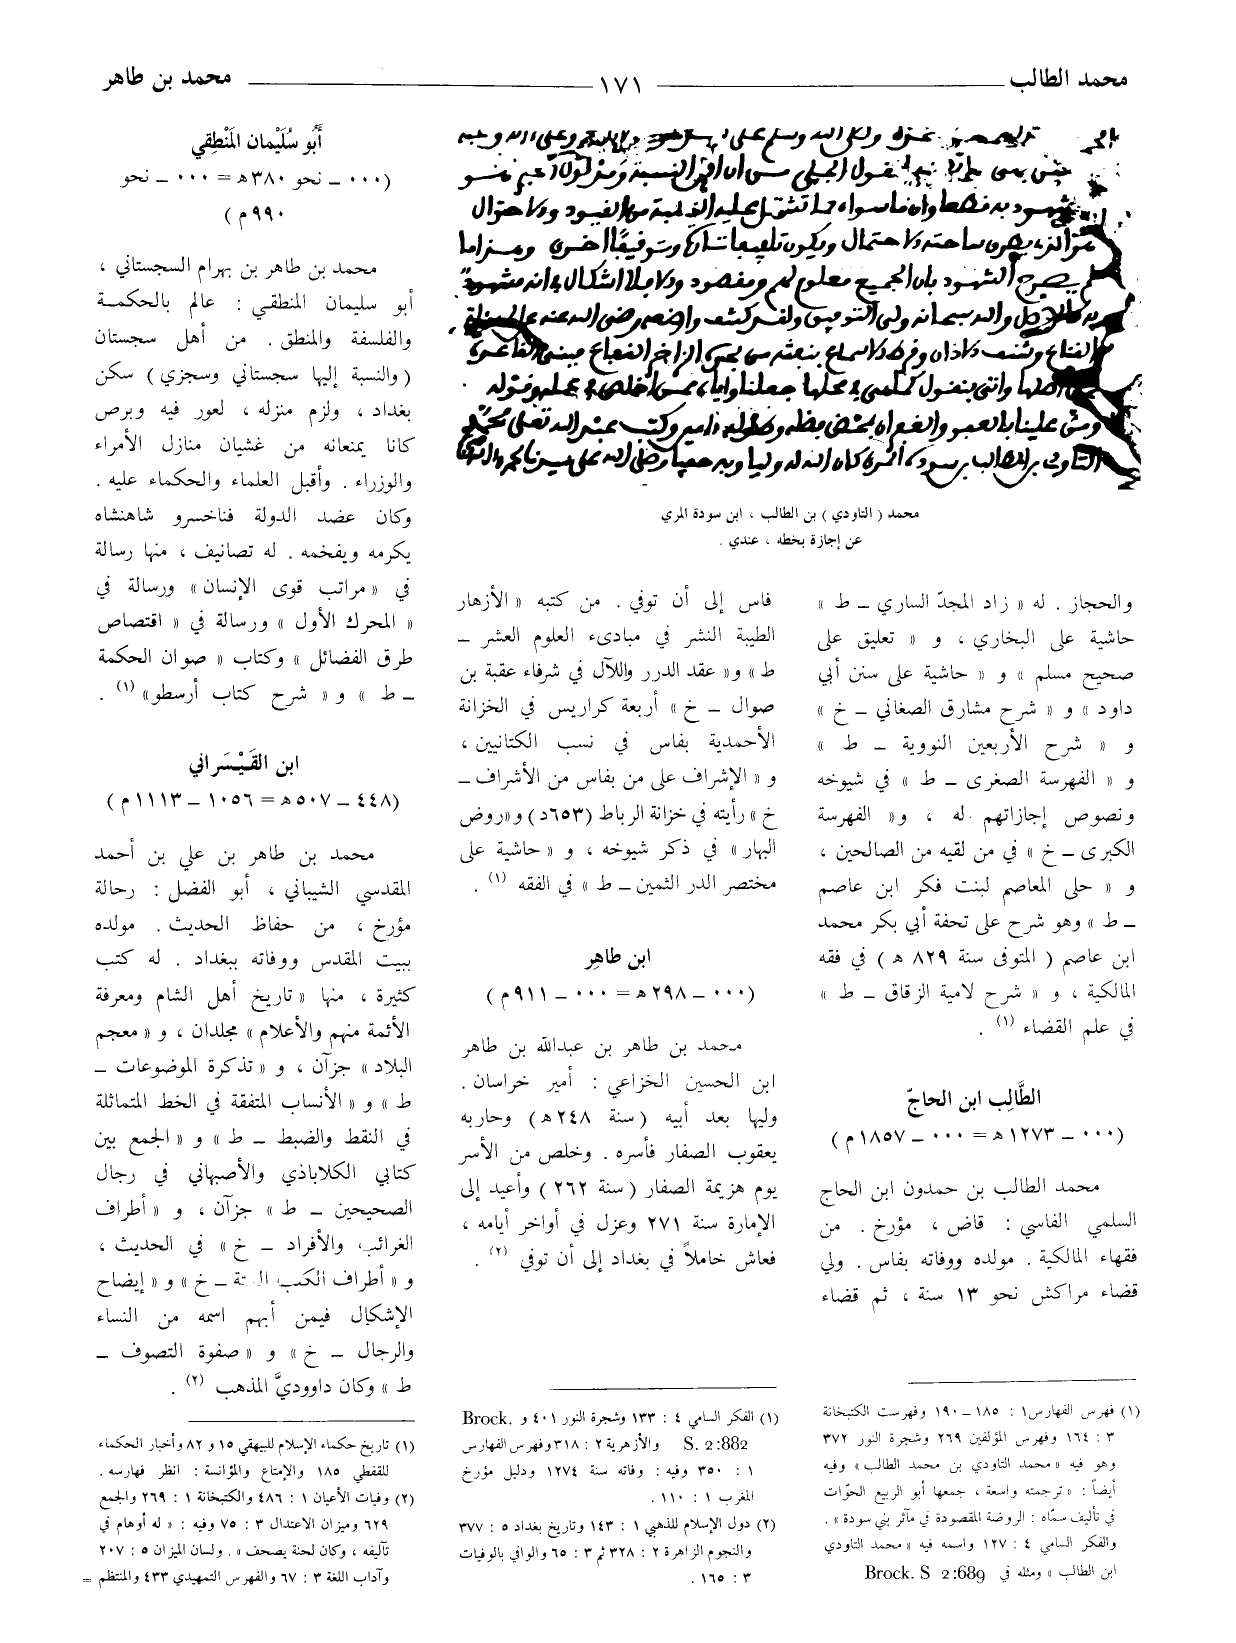 محمد الطالب ــــ ١٧١ ــــ محمد بن طاهر
محمد ( التاودي ) بن الطالب ، ابن سودة المري
عن إجازة بخطه ، عندي .
والحجاز . له « زاد المجدّ الساري ــ ط »
حاشية على البخاري ، و « تعليق على
صحيح مسلم » و « حاشية على سنن أبي
داود » و « شرح مشارق الصغاني ــ خ »
و « شرح الأربعين النووية ــ ط »
و « الفهرسة الصغرى ــ ط » في شيوخه
ونصوص إجازاتهم له ، و« الفهرسة
الكبرى ــ خ » في من لقيه من الصالحين ،
و « حلى المعاصم لبنت فكر ابن عاصم
ــ ط » وهو شرح على تحفة أبي بكر محمد
ابن عاصم ( المتوفى سنة ٨٢٩ ه ) في فقه
المالكية ، و « شرح لامية الزقاق ــ ط »
في علم القضاء (١) .
الطَّالِب ابن الحاجّ
(٠٠٠ ــ ١٢٧٣ ه = ٠٠٠ ــ ١٨٥٧ م )
محمد الطالب بن حمدون ابن الحاج
السلمي الفاسي : قاض ، مؤرخ . من
فقهاء المالكية . مولده ووفاته بفاس . ولي
قضاء مراكش نحو ١٣ سنة ، ثم قضاء
(١) فهرس الفهارس ١ : ١٨٥ ــ ١٩٠ وفهرست الكتبخانة
٣ : ١٦٤ وفهرس المؤلفين ٢٦٩ وشجرة النور ٣٧٢
وهو فيه « محمد التاودي بن محمد الطالب » وفيه
أيضاً : « ترجمته واسعة ، جمعها أبو الربيع الحوّات
في تأليف سمّاه : الروضة المقصودة في مآثر بني سودة » .
والفكر السامي ٤ : ١٢٧ واسمه فيه « محمد التاودي
ابن الطالب » ومثله في Brock. S 2:689
فاس إلى أن توفي . من كتبه « الأزهار
الطيبة النشر في مبادىء العلوم العشر ــ
ط » و« عقد الدرر واللآل في شرفاء عقبة بن
صوال ــ خ » أربعة كراريس في الخزانة
الأحمدية بفاس في نسب الكتانيين ،
و « الإشراف على من بفاس من الأشراف ــ
خ » رأيته في خزانة الرباط (٦٥٣د) و«روض
البهار » في ذكر شيوخه ، و « حاشية على
مختصر الدر الثمين ــ ط » في الفقه (١) .
ابن طاهِر
(٠٠٠ ــ ٢٩٨ ه = ٠٠٠ ــ ٩١١ م )
محمد بن طاهر بن عبدالله بن طاهر
ابن الحسين الخزاعي : أمير خراسان .
وليها بعد أبيه (سنة ٢٤٨ ه ) وحاربه
يعقوب الصفار فأسره . وخلص من الأسر
يوم هزيمة الصفار ( سنة ٢٦٢ ) وأعيد إلى
الإمارة سنة ٢٧١ وعزل في أواخر أيامه ،
فعاش خاملاً في بغداد إلى أن توفي (٢) .
(١) الفكر السامي ٤ : ١٣٣ وشجرة النور ٤٠١ و Brock.
S. 2:882 والأزهرية ٢ : ٣١٨ وفهرس الفهارس
١ : ٣٥٠ وفيه : وفاته سنة ١٢٧٤ ودليل مؤرخ
المغرب ١ : ١١٠ .
(٢) دول الإسلام للذهبي ١ : ١٤٣ وتاريخ بغداد ٥ : ٣٧٧
والنجوم الزاهرة ٢ : ٣٢٨ ثم ٣ : ٦٥ والوافي بالوفيات
٣ : ١٦٥ .
أَبُو سُلَيْمان المَنْطِقي
(٠٠٠ ــ نحو ٣٨٠ ه = ٠٠٠ ــ نحو
٩٩٠ م )
محمد بن طاهر بن بهرام السجستاني ،
أبو سليمان المنطقي : عالم بالحكمة
والفلسفة والمنطق . من أهل سجستان
( والنسبة إليها سجستاني وسجزي ) سكن
بغداد ، ولزم منزله ، لعور فيه وبرص
كانا يمنعانه من غشيان منازل الأمراء
والوزراء . وأقبل العلماء والحكماء عليه .
وكان عضد الدولة فناخسرو شاهنشاه
يكرمه ويفخمه . له تصانيف ، منها رسالة
في « مراتب قوى الإنسان » ورسالة في
« المحرك الأول » ورسالة في « اقتصاص
طرق الفضائل » وكتاب « صوان الحكمة
ــ ط » و « شرح كتاب أرسطو» (١) .
ابن القَيْسَراني
(٤٤٨ ــ ٥٠٧ ه = ١٠٥٦ ــ ١١١٣ م )
محمد بن طاهر بن علي بن أحمد
المقدسي الشيباني ، أبو الفضل : رحالة
مؤرخ ، من حفاظ الحديث . مولده
ببيت المقدس ووفاته ببغداد . له كتب
كثيرة ، منها « تاريخ أهل الشام ومعرفة
الأئمة منهم والأعلام » مجلدان ، و « معجم
البلاد » جزآن ، و « تذكرة الموضوعات ــ
ط » و « الأنساب المتفقة في الخط المتماثلة
في النقط والضبط ــ ط » و « الجمع بين
كتابي الكلاباذي والأصبهاني في رجال
الصحيحين ــ ط » جزآن ، و « أطراف
الغرائب والأفراد ــ خ » في الحديث ،
و « أطراف الكتب الستة ــ خ » و « إيضاح
الإشكال فيمن أبهم اسمه من النساء
والرجال ــ خ » و « صفوة التصوف ــ
ط » وكان داووديَّ المذهب (٢) .
(١) تاريخ حكماء الإسلام للبيهقي ١٥ و ٨٢ وأخبار الحكماء
للقفطي ١٨٥ والإمتاع والمؤانسة : انظر فهارسه .
(٢) وفيات الأعيان ١ : ٤٨٦ والكتبخانة ١ : ٢٦٩ والجمع
٦٢٩ وميزان الاعتدال ٣ : ٧٥ وفيه : « له أوهام في
تآليفه ، وكان لحنة يصحف » . ولسان الميزان ٥ : ٢٠٧
وآداب اللغة ٣ : ٦٧ والفهرس التمهيدي ٤٣٣ والمنتظم =